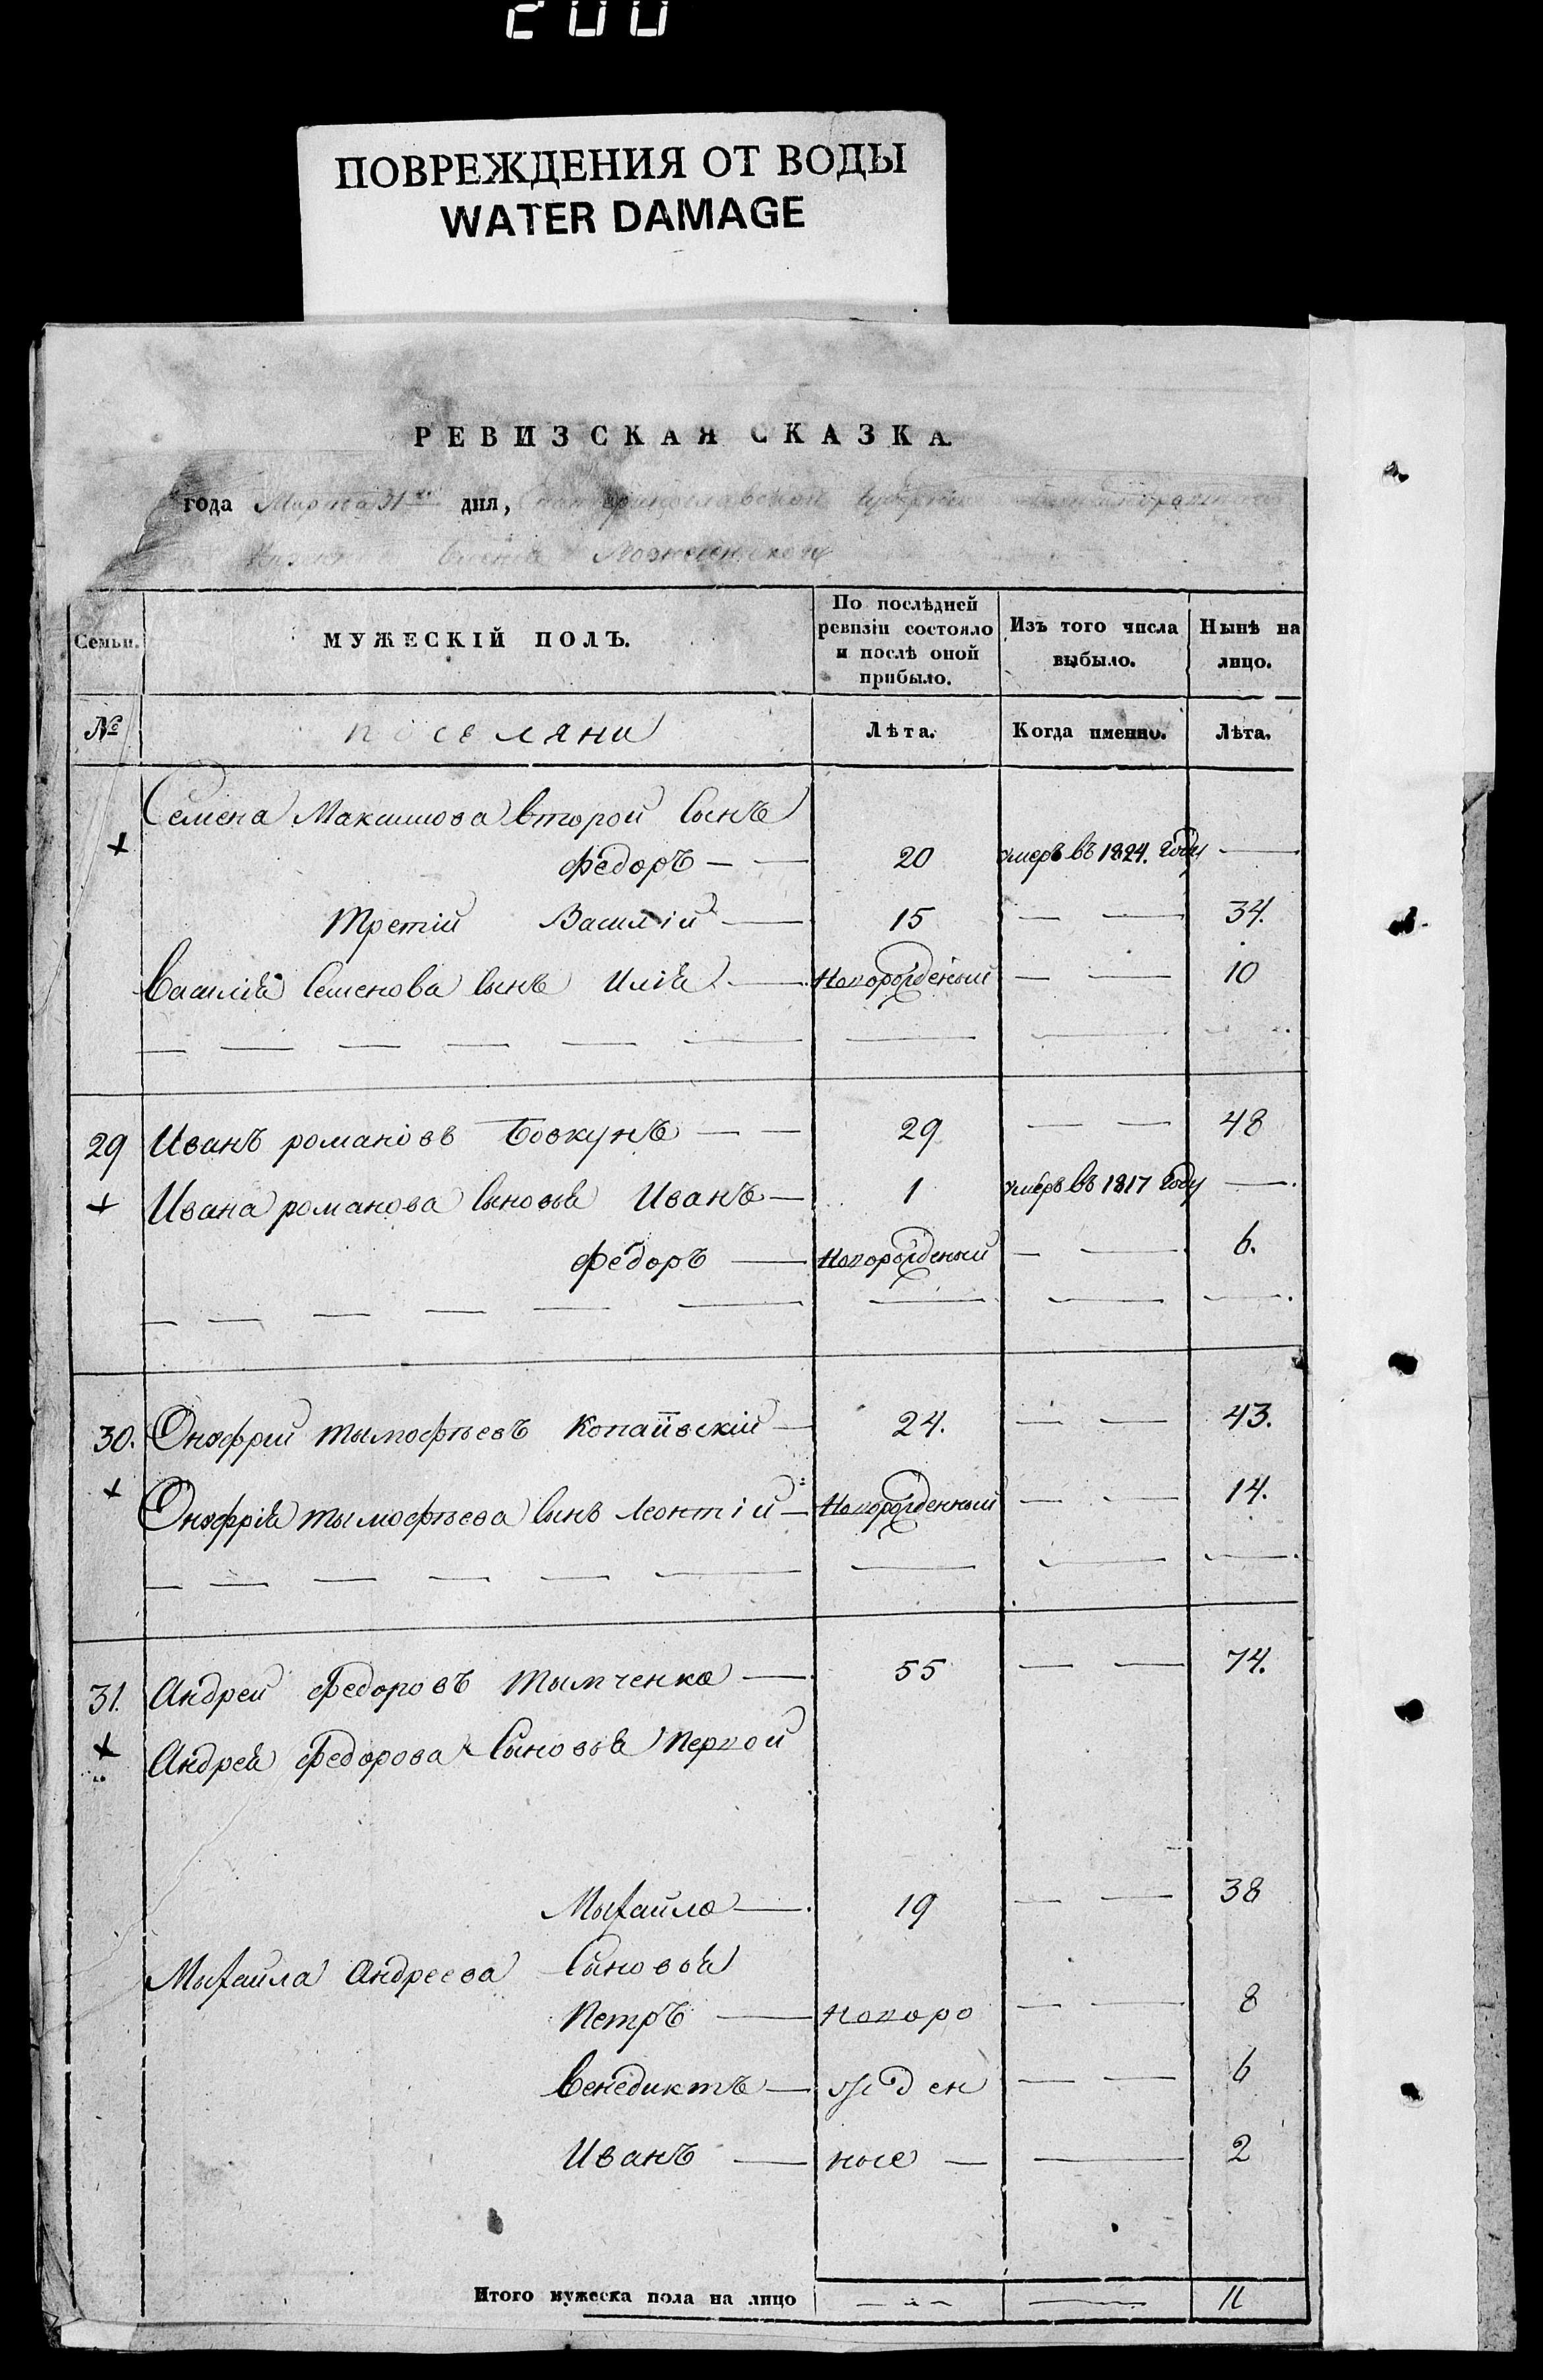 200
ПОВРЕЖДЕНИЯ ОТ ВОДЫ
WATER DAMAGE
РЕВИЗСКАЯ СКАЗКА
года Марта 31го дня, Екатеринославской Губернии
Имения
Семьи. МУЖЕСКІЙ ПОЛЪ. По послѣдней ревизіи состояло и послѣ оной прибыло. Изъ того числа выбыло. Нынѣ на лицо.
№ поселяни Лѣта. Когда именно. Лѣта.
Семена Максимова второй Сынъ
+ Федоръ — — 20 умеръ въ 1824. Году —
третій Василій — 15 — — 34.
Василія Семенова Сынъ Илія — Новорожденый — — 10
29 Иванъ романовъ Бовкунъ — — 29 — — 48
+ Ивана романова Сыновья Иванъ — 1 умеръ въ 1817 Году —
Федоръ — Новорожденый — — 6.
30. Онофрій тымофѣевъ Копайвскій — 24. — — 43.
+ Онофрія тымофѣева Сынъ Леонтій — Новорожденный — — 14.
31. Андрей Федоровъ тымченко — 55 — — 74.
+ Андрея Федорова Сыновья Первой
Мыхайло — 19 — — 38
Мыхайла Андреева Сыновья
Петръ — Новоро — — 8
Венедиктъ — жден — — 6
Иванъ — ные — — 2
Итого мужеска пола на лицо — — — — 11